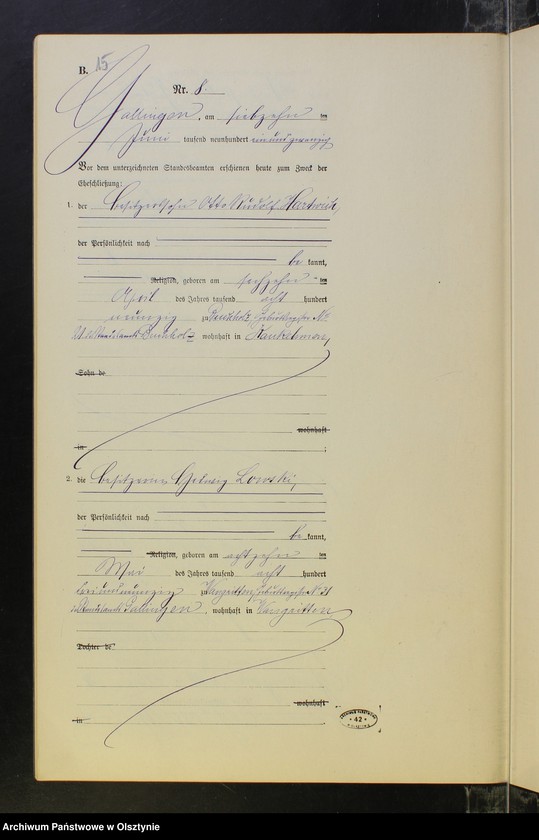 B.
15
Nr. 8.
Gallingen, am siebzehn ten
Juni tausend neunhundert ein und zwanzig
Vor dem unterzeichneten Standesbeamten erschienen heute zum Zweck der
Eheschließung:
1. der Besitzersohn Otto Rudolf Hartwich,
der Persönlichkeit nach
be kannt,
Religion, geboren am sechzehn ten
April des Jahres tausend acht hundert
neunzig zu Geburtsregister Nr.
wohnhaft in
Sohn de
wohnhaft
in ;
2. die Besitzerin Hedwig Lowski,
der Persönlichkeit nach
be kannt,
Religion, geboren am achtzehn ten
Mai des Jahres tausend acht hundert
drei und neunzig zu Wangritten, Geburtsregister N. 21
Standesamts Gallingen, wohnhaft in Wangritten
Tochter de
wohnhaft
in
42
Archiwum Państwowe w Olsztynie